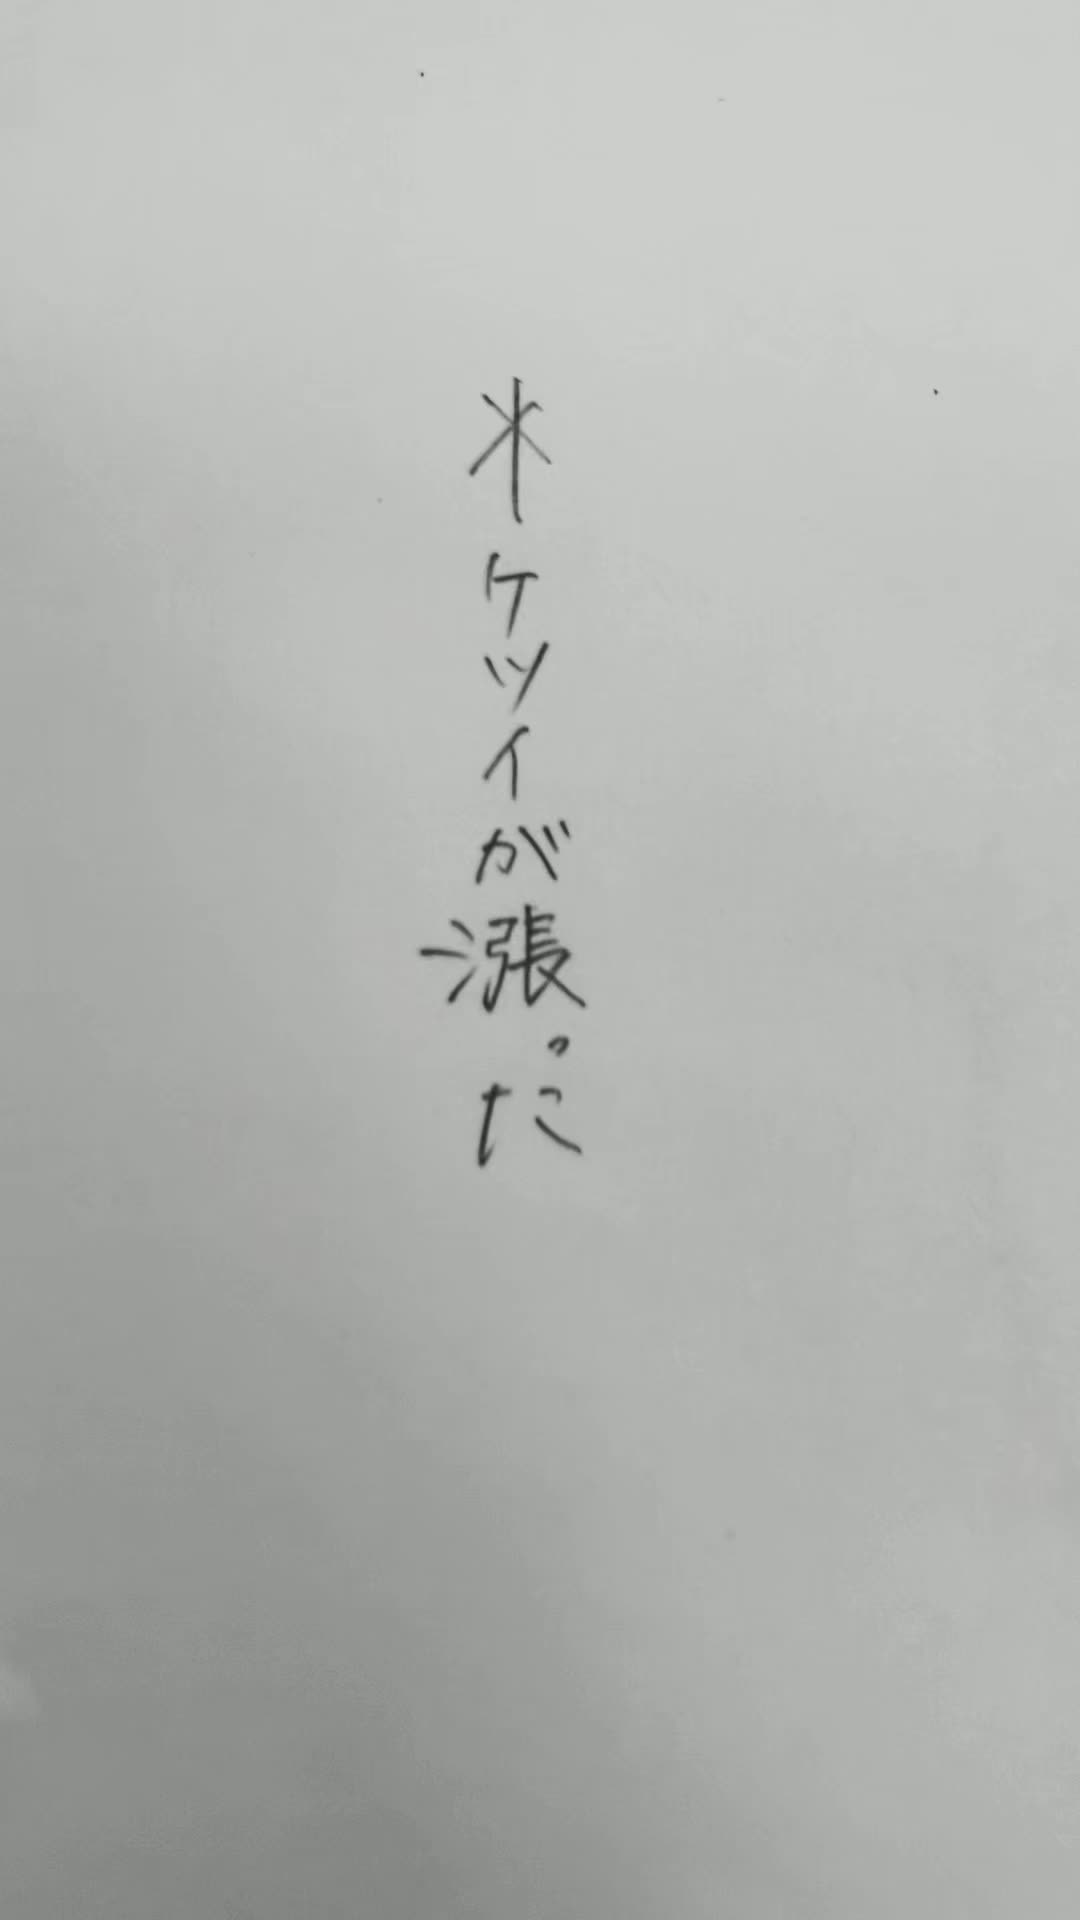 ＊ケツイが漲った